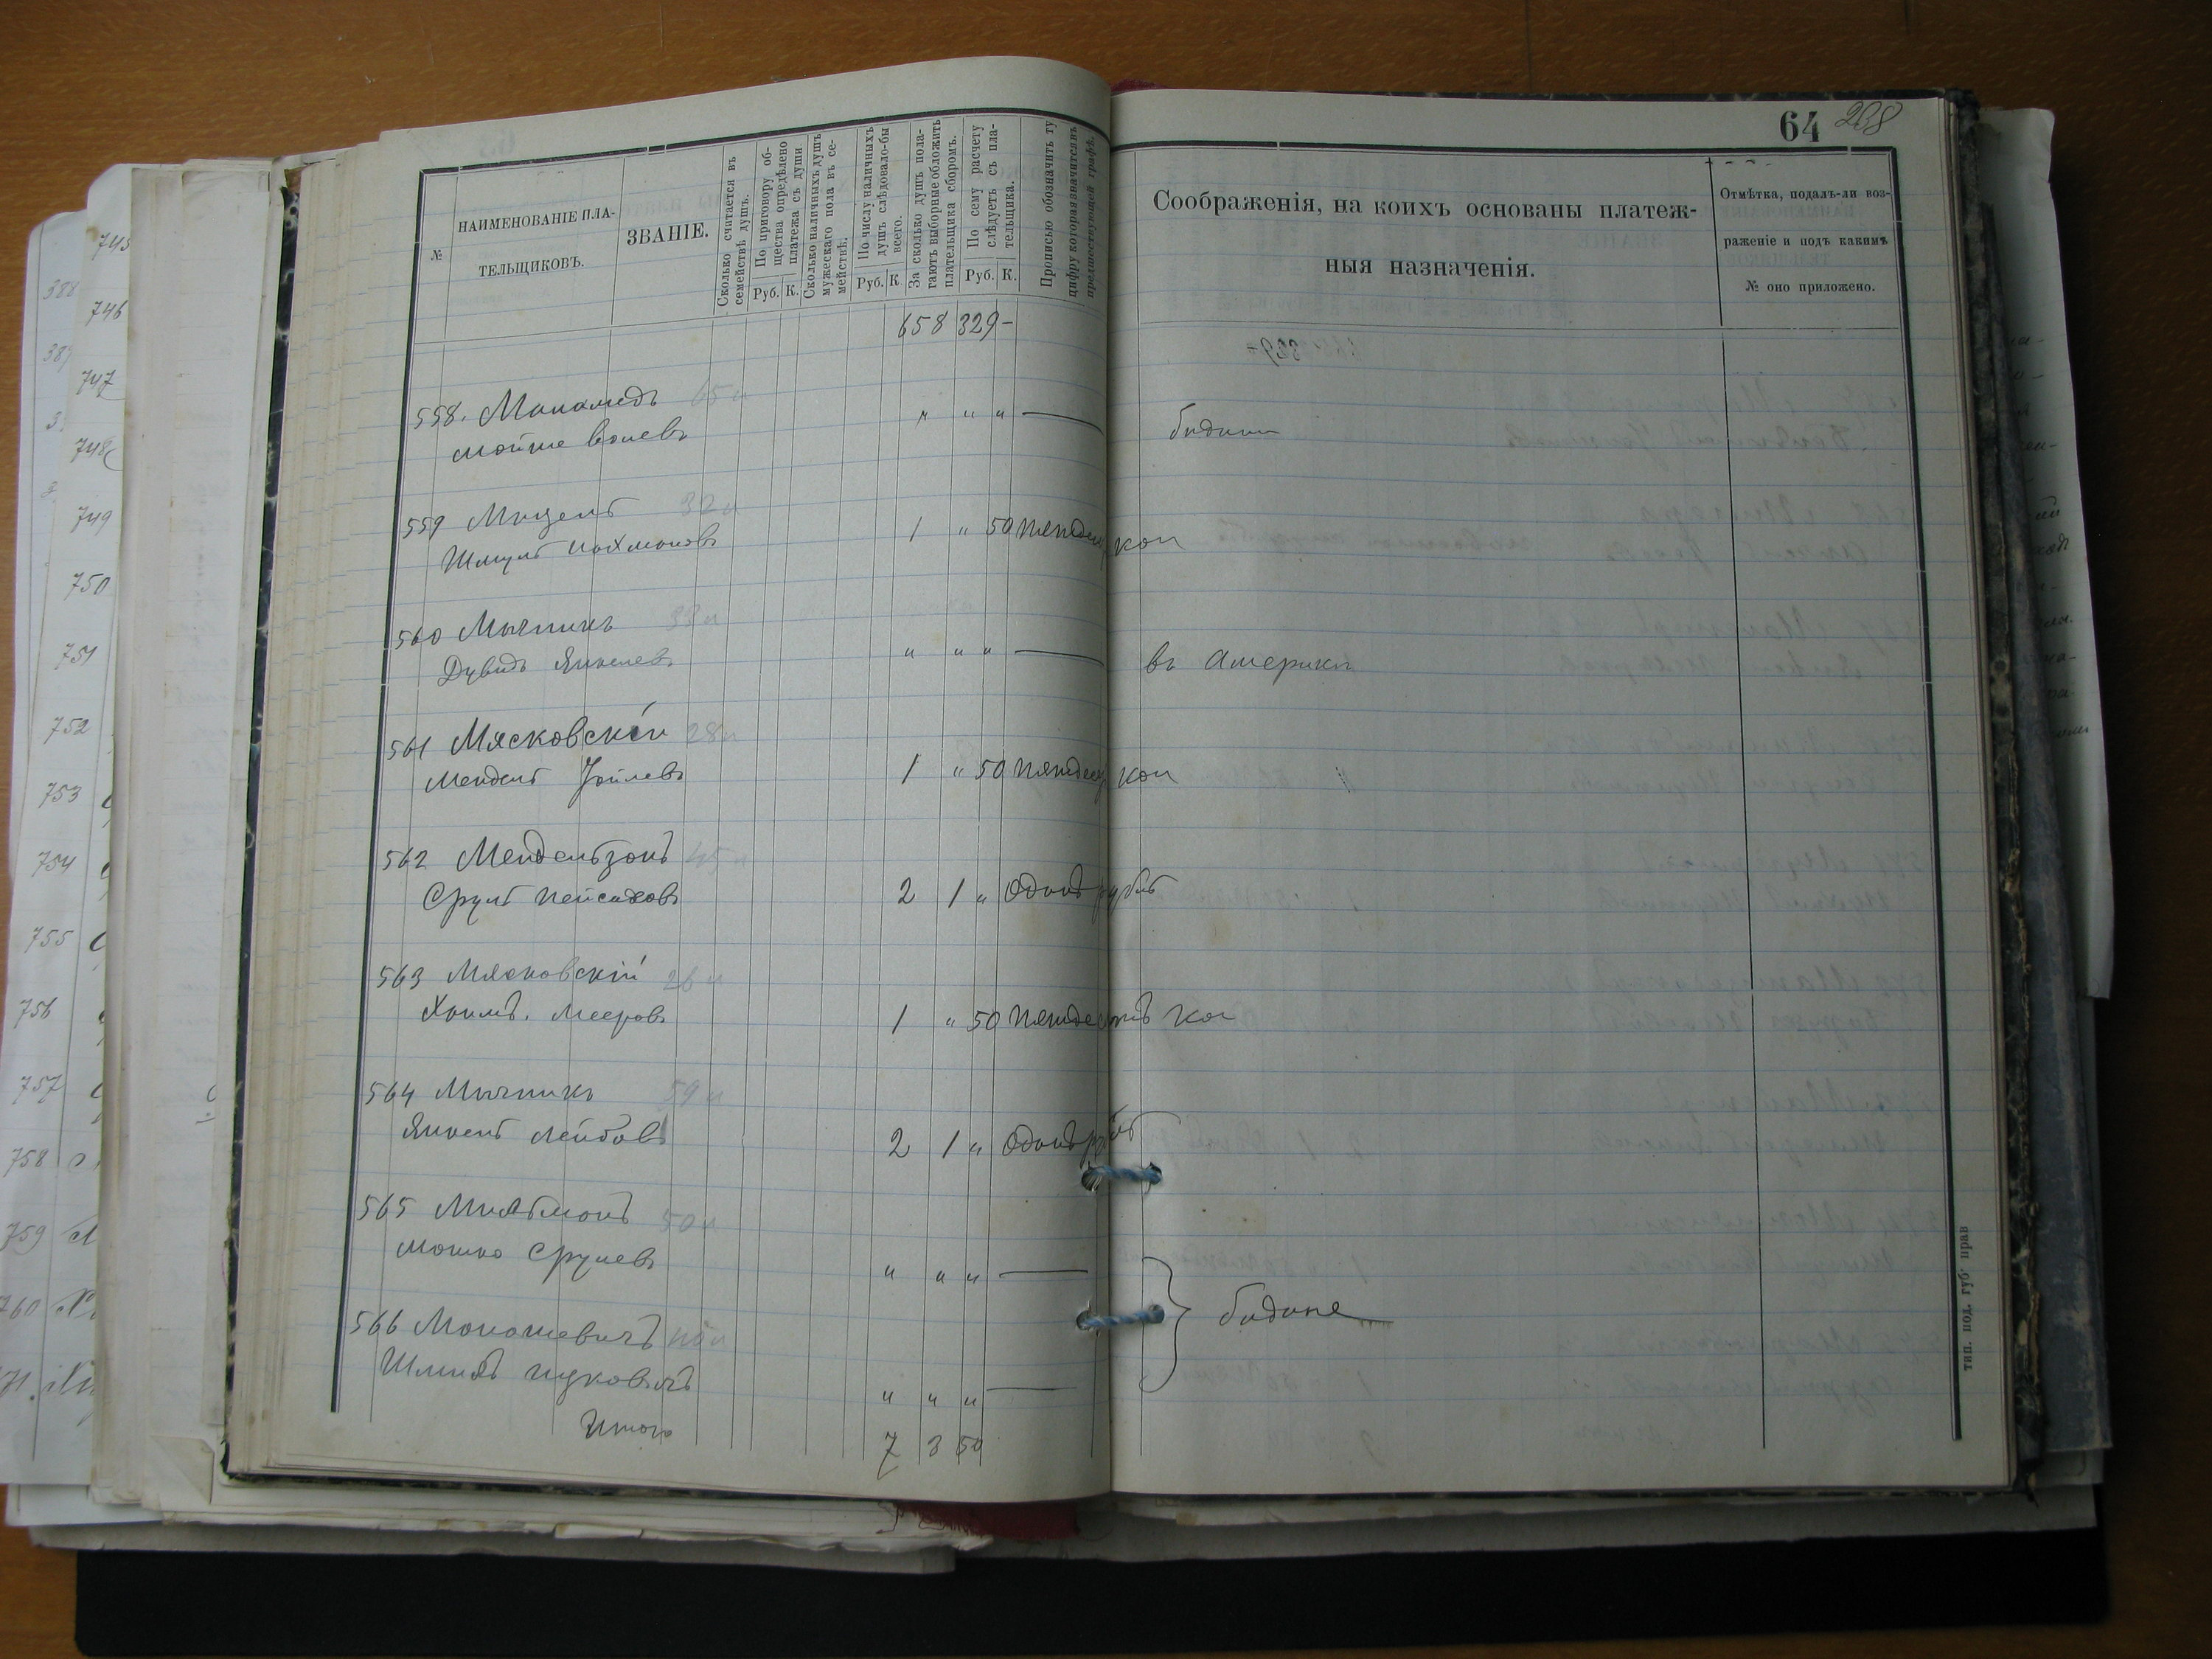 64 268
№
НАИМЕНОВАНІЕ ПЛА-
ТЕЛЬЩИКОВЪ.
ЗВАНІЕ.
Сколько считается въ
семействѣ душъ.
По приговору об-
щества опредѣлено
платежа съ души
Руб. К.
Сколько наличныхъ душъ
мужескаго пола въ се-
мействѣ.
По числу наличныхъ
душъ слѣдовало-бы
всего.
Руб. К
За сколько душъ пола-
гаютъ выборные обложить
плательщика сборомъ.
По сему расчету
слѣдуетъ съ пла-
тельщика.
Руб. К.
Прописью обозначить ту
цифру которая значится въ
предшествующей графѣ.
Соображенія, на коихъ основаны платеж-
ныя назначенія.
Отмѣтка, подалъ-ли воз-
раженіе и подъ какимъ
№ оно приложено.
658 329 -
558. 65
Мойше Волевъ " " " бидний
559 32
Шмуль Нохмоновъ 1 " 50 пятдеся коп
560 Мычникъ
Дувидъ Янкелевъ " " " въ Америки
561 Мясковскій 28
Мендель Іойлевъ 1 " 50 пятдеся коп
562 Мендельзонъ 45
Сруль Пейсаховъ 2 1 " Одинъ рубль
563 Мясковскій 26
Хаимъ. Мееровъ 1 " 50 пятдесятъ коп
564 Мычникъ 59
Янкель Лейбовъ 2 1 " Одинъ рубль
565 50
Мошко Срулевъ " " "
566 Моношевичъ
" " " бидные
Итого 7 3 50
745
746
747
748
749
750
751
752
753
754
755
756
757
758
759
760
тип. под. губ. прав